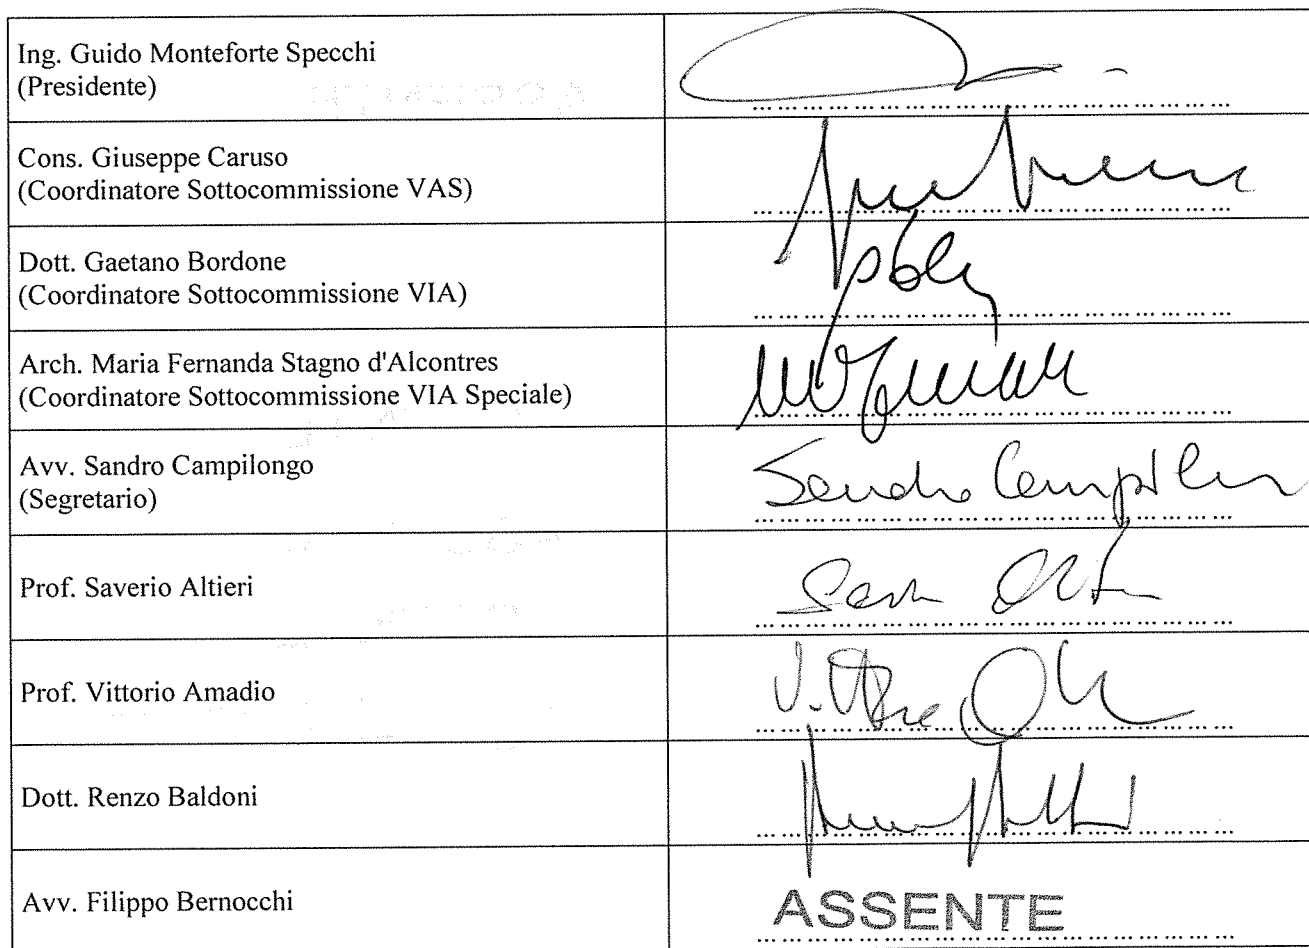 Ing. Guido Monteforte Specchi
(Presidente)
Cons. Giuseppe Caruso
(Coordinatore Sottocommissione VAS)
Dott. Gaetano Bordone
(Coordinatore Sottocommissione VIA)
Arch. Maria Fernanda Stagno d'Alcontres
(Coordinatore Sottocommissione VIA Speciale)
Avv. Sandro Campilongo
(Segretario)
Sandro
Prof. Saverio Altieri
Prof. Vittorio Amadio
Dott. Renzo Baldoni
Avv. Filippo Bernocchi
ASSENTE